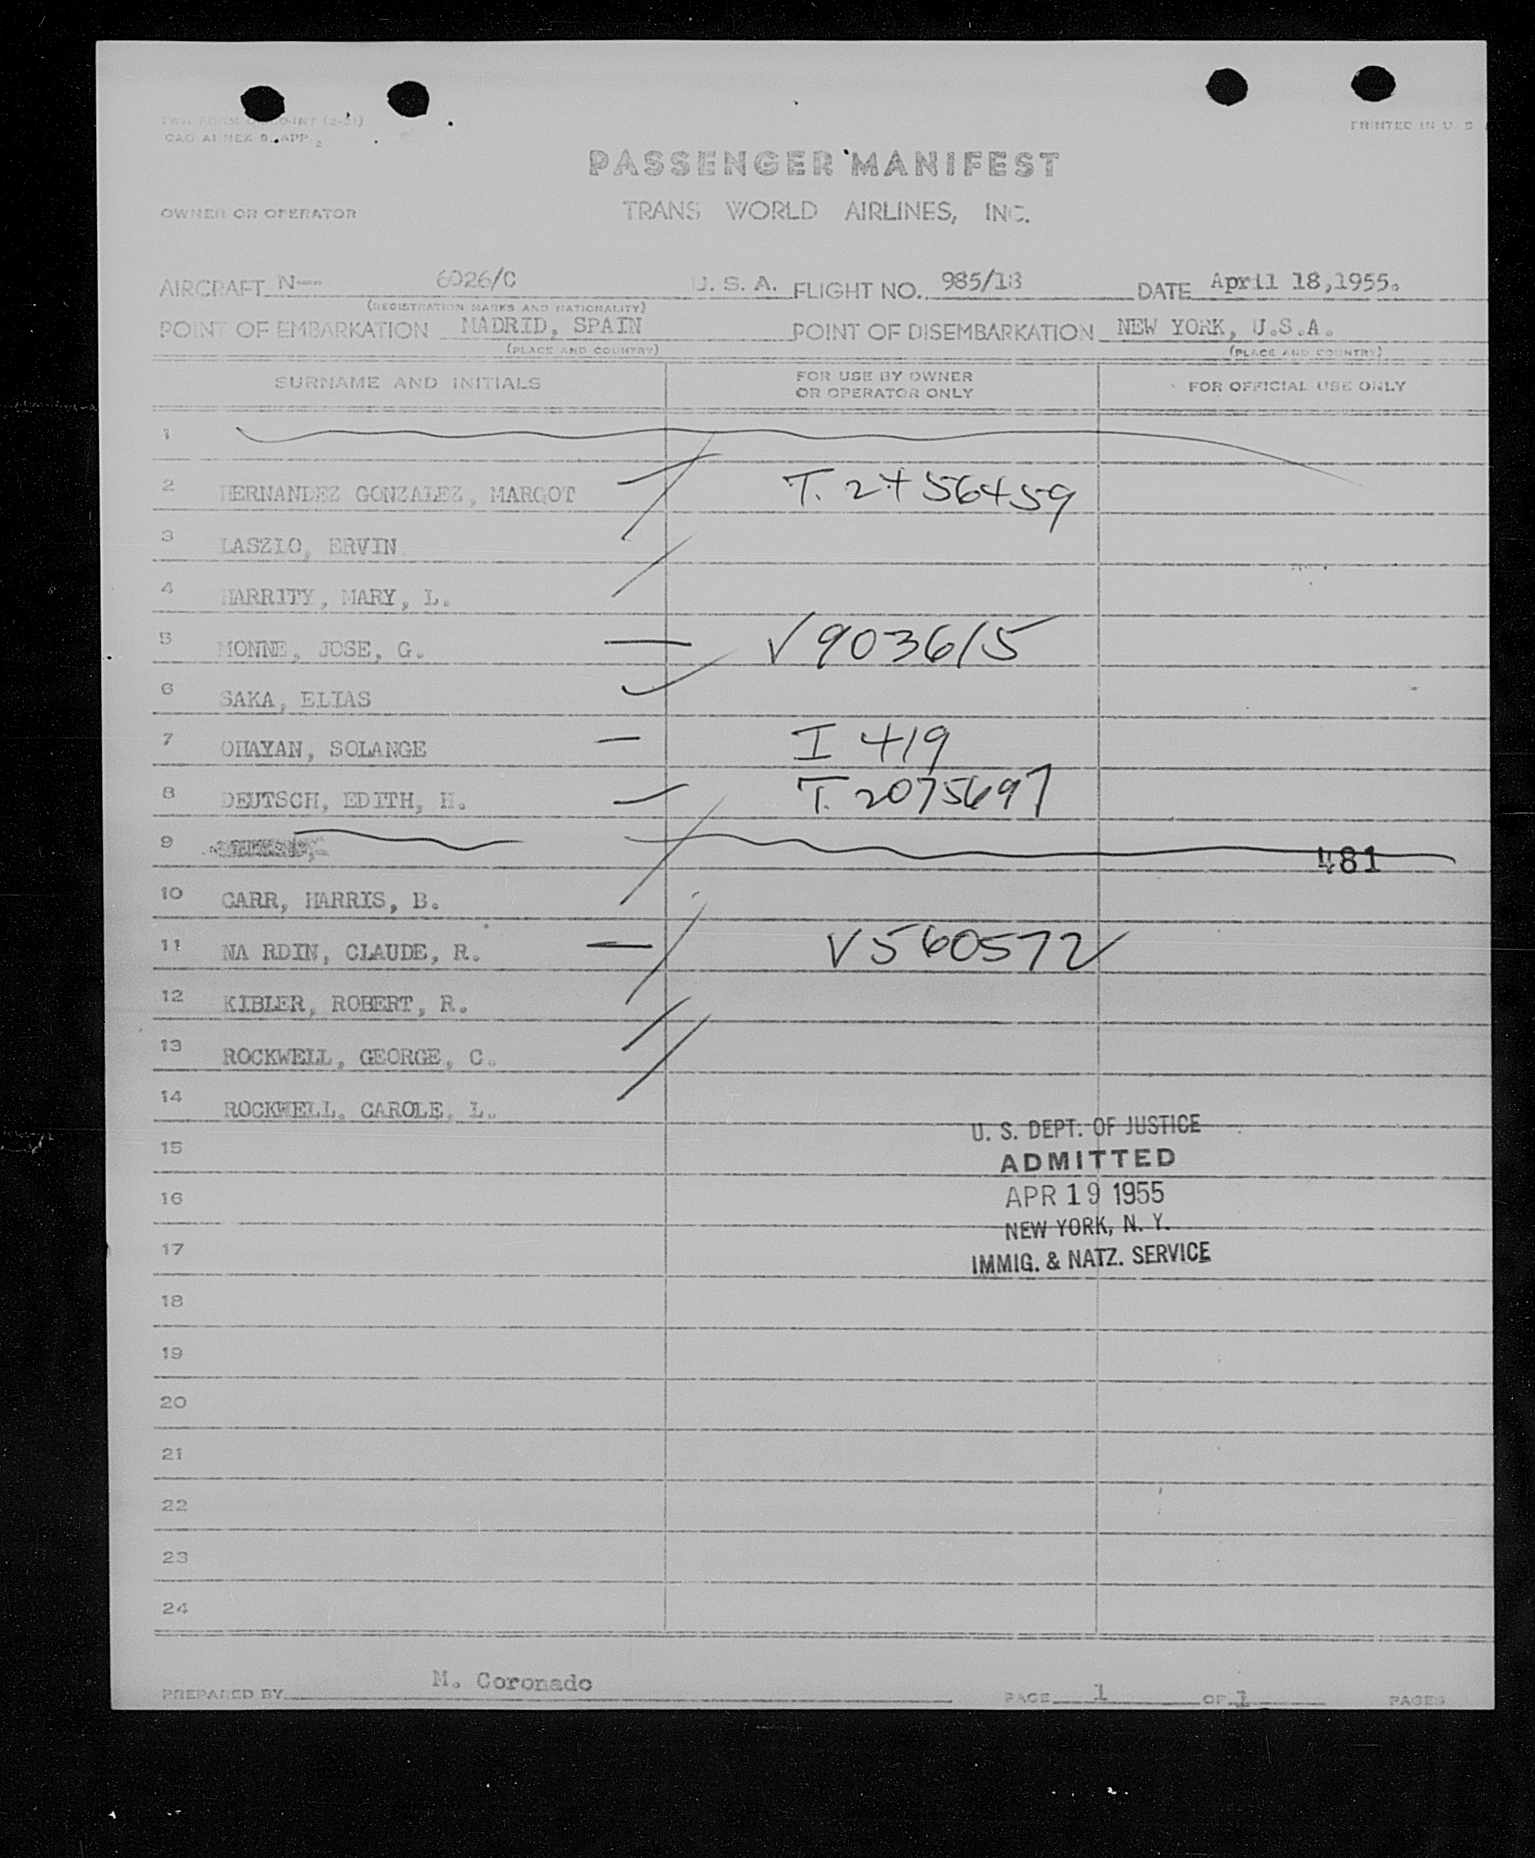 CAO ANNEX 9, APP. 2
PRINTED IN U. S.
PASSENGER MANIFEST
OWNER OR OPERATOR
TRANS WORLD AIRLINES, INC.
AIRCRAFT N-- 6026/C U. S. A. FLIGHT NO. 985/18 DATE April 18,1955.
(REGISTRATION MARKS AND NATIONALITY)
POINT OF EMBARKATION MADRID, SPAIN POINT OF DISEMBARKATION NEW YORK, U.S.A.
(PLACE AND COUNTRY) (PLACE AND COUNTRY)
SURNAME AND INITIALS FOR USE BY OWNER OR OPERATOR ONLY FOR OFFICIAL USE ONLY
1
2 HERNANDEZ GONZALEZ, MARGOT T. 2756459
3 LASZLO, ERVIN
4 HARRITY, MARY, L.
5 MONNE, JOSE, G. V 903615
6 SAKA, ELIAS
7 OHAYAN, SOLANGE I 419
8 DEUTSCH, EDITH, H. T. 2075697
9 481
10 CARR, HARRIS, B.
11 NA RDIN, CLAUDE, R. V 560572
12 KIBLER, ROBERT, R.
13 ROCKWELL, GEORGE, C.
14 ROCKWELL, CAROLE, L.
U. S. DEPT. OF JUSTICE
15
ADMITTED
16 APR 19 1955
NEW YORK, N. Y.
17
IMMIG. & NATZ. SERVICE
18
19
20
21
22
23
24
PREPARED BY M. Coronado PAGE 1 OF 1 PAGES